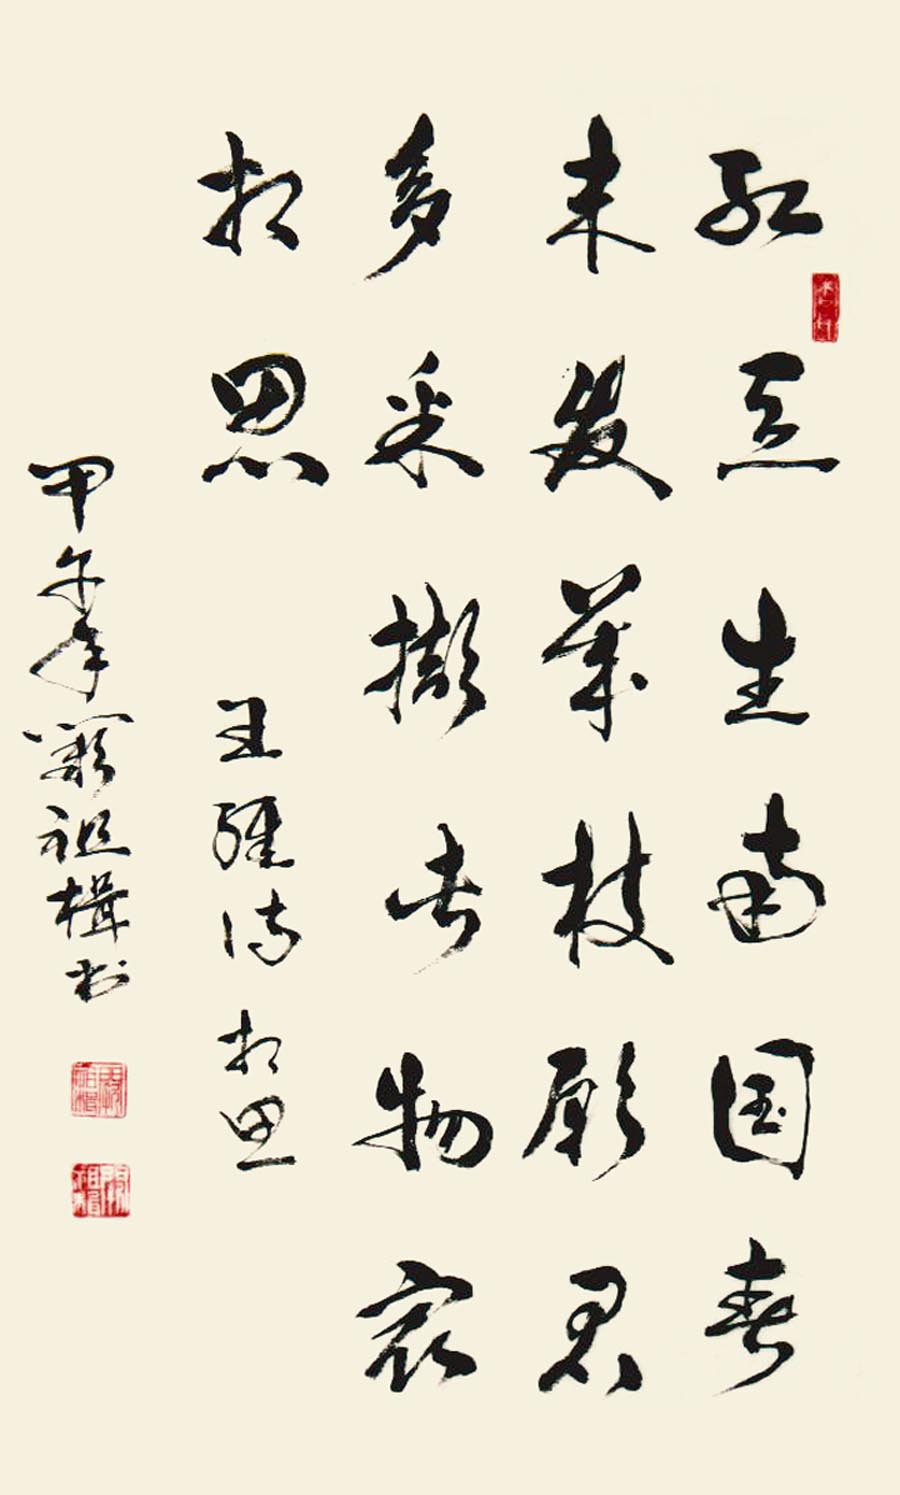 红豆生南国春
来發幾枝願君
多采撷此物最
相思 王维诗相思
甲午年 祖楫书